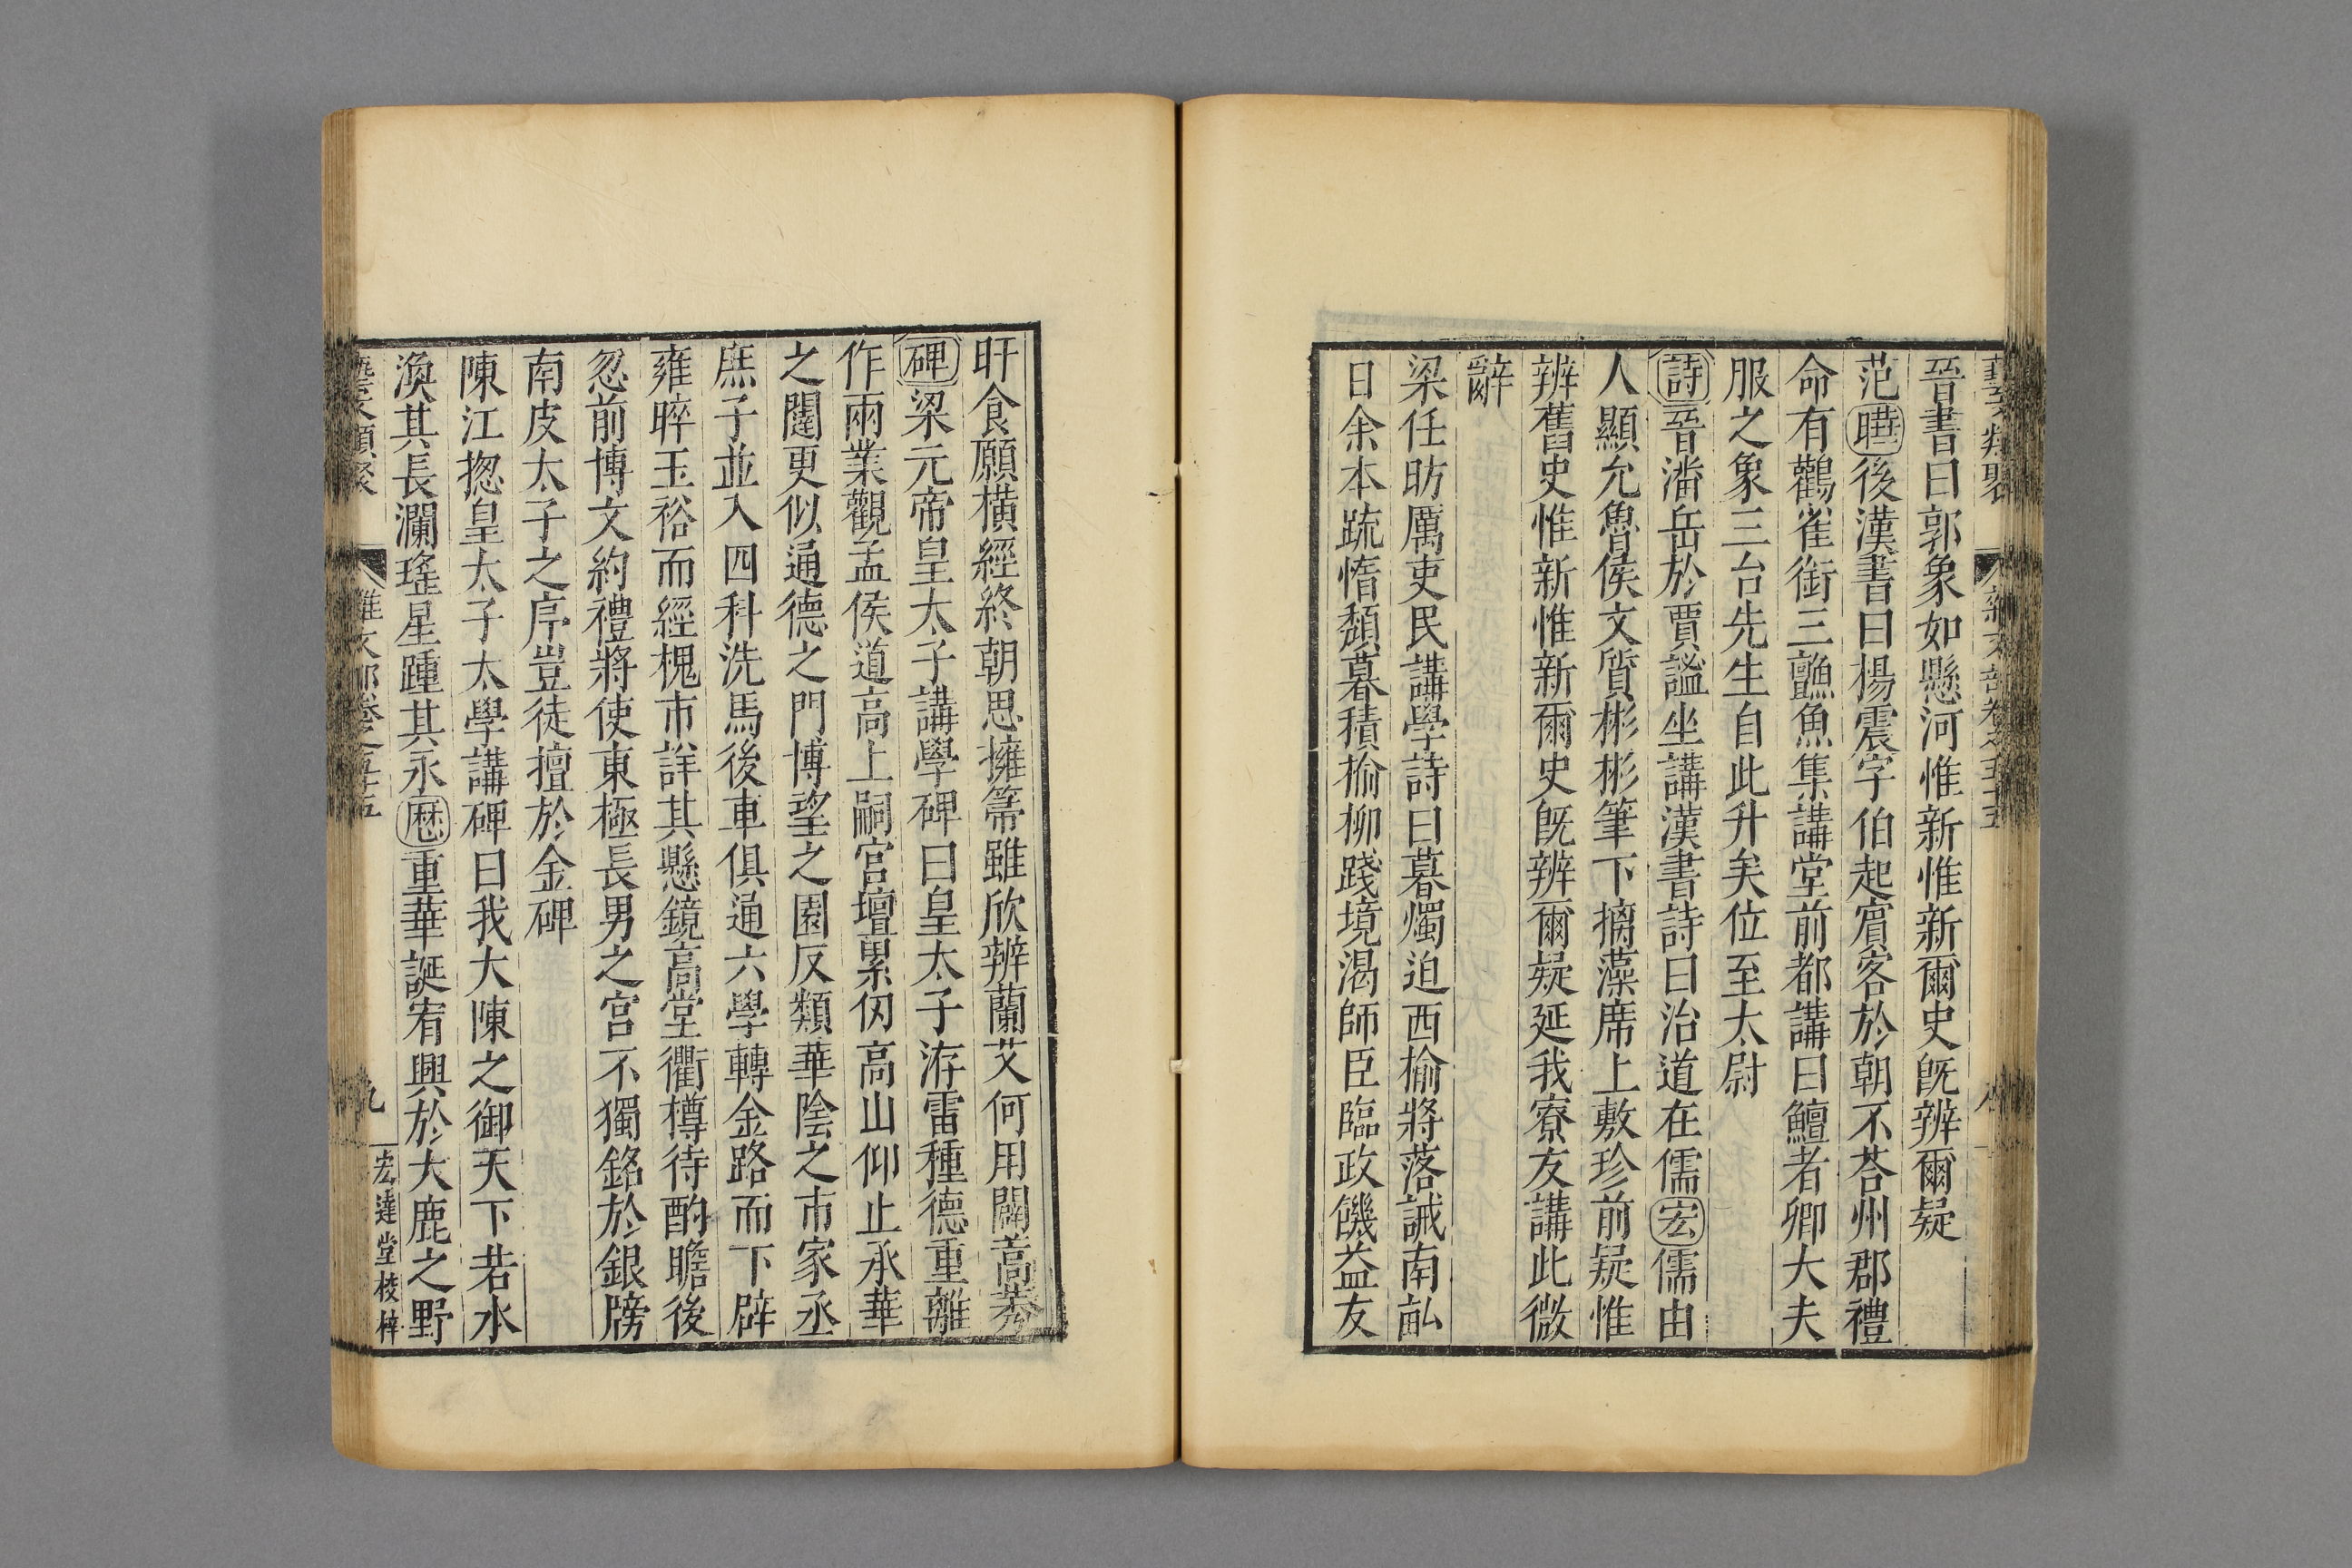 藝文類聚 雜文部卷之五十五 八
晉書曰郭象如懸河惟新惟新爾史旣辨爾疑
范曄後漢書曰楊震字伯起賔客於朝不荅州郡禮
命有鸛雀銜三鱣魚集講堂前都講曰鱣者卿大夫
服之象三台先生自此升矣位至太尉
詩晉潘岳於賈謐坐講漢書詩曰治道在儒宏儒由
人顯允魯侯文質彬彬筆下摛藻席上敷珍前疑惟
辨舊史惟新惟新爾史旣辨爾疑延我寮友講此微
辭
梁任昉厲吏民講學詩曰暮燭迫西榆將落誡南畝
曰余本疏惰頽暮積榆柳踐境渴師臣臨政饑益友
旰食願橫經終朝思擁箒雖欣辨蘭艾何用闢蒿莠
碑梁元帝皇太子講學碑曰皇太子洊雷種德重離
作兩業觀孟侯道高上嗣宫壇累仞高山仰止承華
之闥更似通德之門博望之園反類華陰之市家丞
庶子並入四科洗馬後車俱通六學轉金路而下辟
雍晬玉裕而經槐市詳其懸鏡高堂衢樽待酌瞻後
忽前博文約禮將使東極長男之宫不獨銘於銀牓
南皮太子之序豈徒擅於金碑
陳江揔皇太子太學講碑曰我大陳之御天下若水
渙其長瀾瑤星踵其永厯重華誕宥興於大鹿之野
藝文類聚 雜文部卷之五十五 九 宏達堂校梓